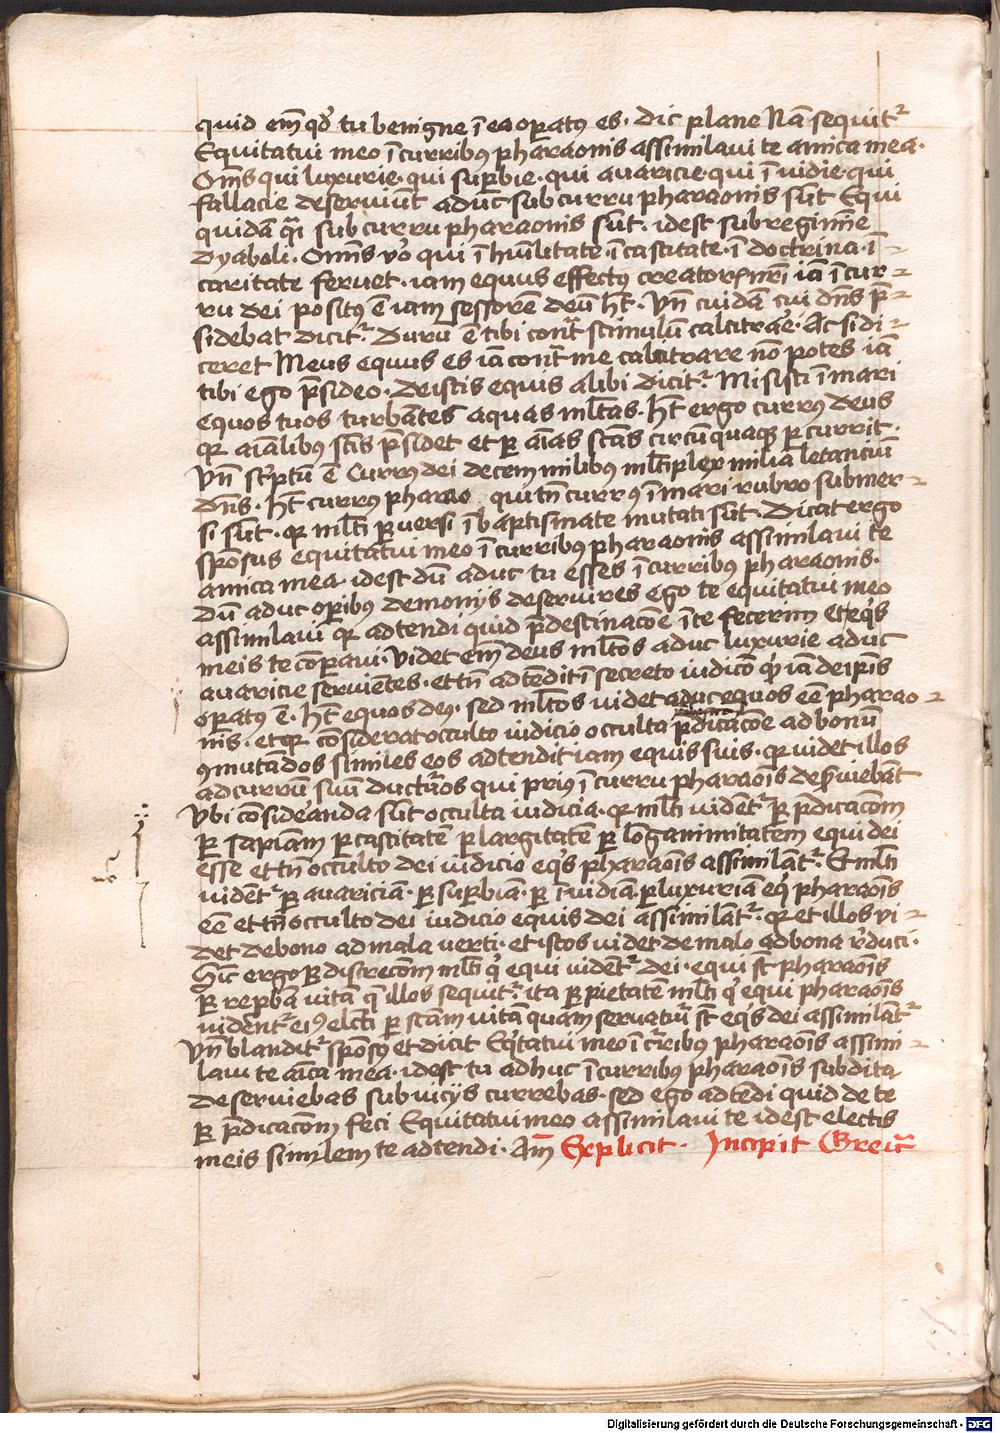 quid em̄ qđ tu benigne ī ea oꝑatꝰ es · dic plane Nā sequit᷑
Equitatui meo ī curribꝰ pharaonis assimilaui te amica mea ·
Om̄s qui luxurie · qui suꝑbie · qui auaricie · qui īuidie · qui
fallacie deseruiūt aduc̄ sub curru pharaonis sūt Equi
quidā q̄i sub curru pharaonis sūt · idest sub regimīe
dyaboli · Om̄s ꝟo qui ī hūilitate · ī castitate · ī doctrina · ī
caritate feruet · iam equus effectus creatoris nr̄i iā ī cur-
ru dei positꝰ ē iam sessorē deū hēt · Vn̄ cuidā cui dn̄s p̄-
sidebat dicit᷑ · Durū ē tibi cont᷑ stimulū calcitrar̄e · Ac si di-
ceret Meus equus es iā cont᷑ me calcitrare nō potes iā
tibi ego p̄sideo · De istis equis alibi dicit᷑ · Misisti ī mari
equos tuos turbātes aquas ml̄tas · Hēt ergo currꝰ deus
qꝛ aīalibꝰ sc̄is p̄sidet et ꝑ aīas sc̄tas circūquaqꝫ ꝑcurrit ·
Vn̄ sc̄ptū ē Currꝰ dei decem milibꝰ ml̄tiplex milia letanciū
dn̄s · Hēt currꝰ pharao · qui tn̄ currꝰ ī mari rubro submer-
si sūt · qꝛ ml̄ti ꝑuersi ī baptismate mutati sūt · Dicat ergo
spōsus equitatui meo ī curribꝰ pharaonis assimilaui te
amica mea · idest dū aduc tu esses ī curribꝰ pharaonis ·
Dū aduc oꝑibꝰ demoniis deseruires ego te equitatui meo
assimilaui qꝛ adtendi quid p̄destinacōe ī te fecerim et eqͥs
meis te cōparaui · Videt em̄ deus ml̄tos aduc luxurie aduc
auaricie seruiētes · et tn̄ adtēdit ī secreto iudicō qͥ iā de ip̄is
oꝑatꝰ ē · Hēt equos deꝰ · sed ml̄tos videt aduc equos eē pharao-
nis · et qꝛ cōsiderat occulto iudicio occulta p̄dicacōe ad bonū
ꝯmutādos similes eos adtendit iam equis suis · qꝛ videt illos
ad currū suū ducturos qui priꝰ ī curru pharaoīs deẜuiebāt
Vbi cōsiderāda sūt occulta iudicia · qꝛ ml̄ti vidēt᷑ ꝑ p̄dicacōm
ꝑ sapiam ꝑ castitatē ꝑ largitatē ꝑ lōganimitatem equi dei
esse et tn̄ occulto dei iudicio eqͥs pharaoīs assimilāt᷑ · Et ml̄ti
vidēt᷑ ꝑ auariciā · ꝑ suꝑbiā · ꝑ īuidiā · ꝑ luxuriā eqͥ pharaoīs
eē et tn̄ occulto dei iudicio equis dei assimilāt᷑ · qꝛ et illos vi-
det de bono ad mala verti · et istos videt de malo ad bona r̄duci ·
Sic̄ ergo ꝑ discrecōm ml̄ti qͥ equi vidēt᷑ dei · equi sт̄ pharaoīs
ꝑ reꝓbā vitā q̄ illos sequit᷑ · ita ꝑ pietatē ml̄ti qͥ equi pharaoīs
vidēt᷑ eiꝰ elcti ꝑ sc̄tam vitā quam seruatur̄i st̄ eqͥs dei assimilāt᷑
Vn̄ blandit᷑ spōsꝰ et dicit Eqͥtatui meo ī c᷑ribꝰ pharaoīs assimi-
laui te aīca mea · idest tu adhuc ī curribꝰ pharaoīs subdita
deseruiebas sub viciis currebas · sed ego adtēdi quid de te
ꝑ p̄dicacōm feci Equitatui meo assimilaui te idest electis
meis similem te adtendi · Am̄ Explicit · Incipit Greit᷑
Digitalisierung gefördert durch die Deutsche Forschungsgemeinschaft - DFG